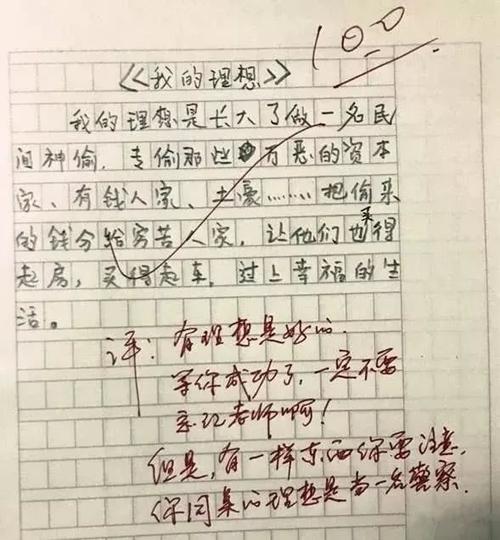 100
《我的理想》
我的理想是长大了做一名民
间神偷，专偷那些万恶的资本
家、有钱人家、土豪………把偷来
的钱分给穷苦人家，让他们也买得
起房，买得起车，过上幸福的生
活。
评：有理想是好的.
等你成功了，一定不要
忘记老师啊！
但是，有一样东西你要注意，
你同桌的理想是当一名警察.